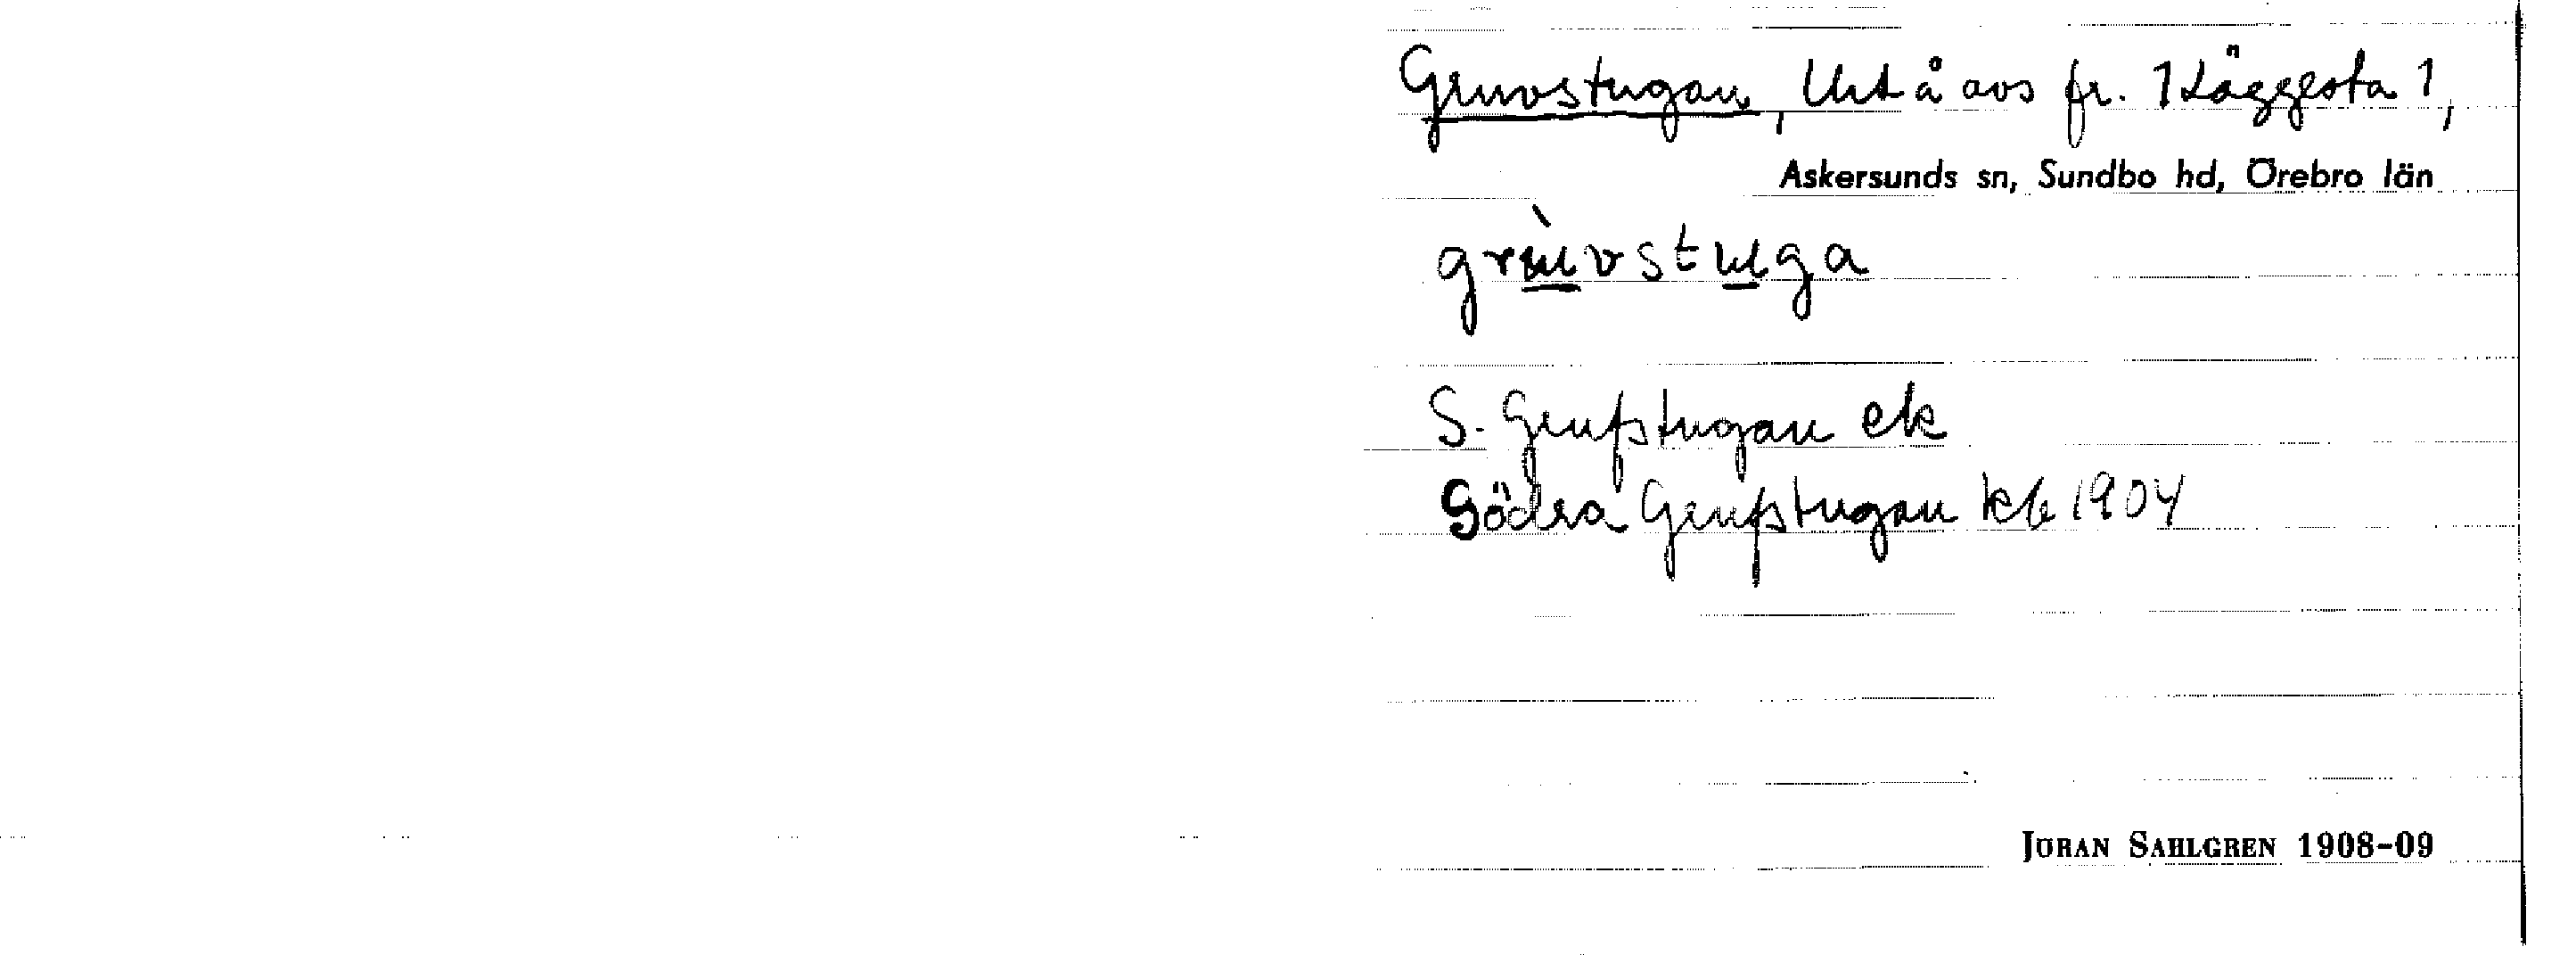 Gruvstugan, Urt å avs fr. 1 Läggesta 1,
Askersunds sn, Sundbo hd, Örebro län
grùvstuga
S. Grufstugan ek
Södra Grufstugan kb 1904
JÖRAN SAHLGREN 1908-09